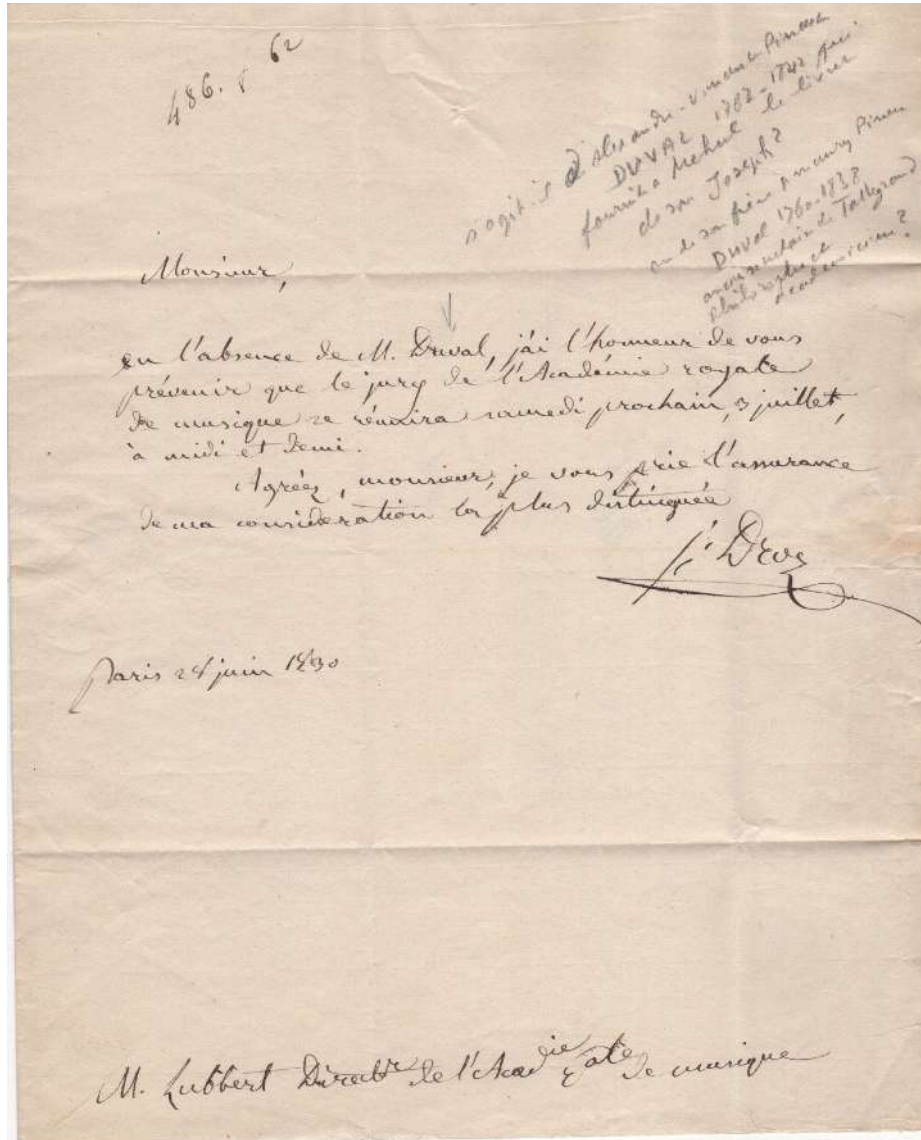 486. 62
s'agit-il d'Alexandre-Vincent Pineux
DUVAL 1767-1842 qui
fournit à Méhul le livret
de son Joseph?
ou de son frère Amaury Pineu
Duval 1760-1838
ancien secrétaire de Talleyrand
philosophe et
academicien?
Monsieur,
en l'absence de M. Duval, j'ai l'honneur de vous
prévenir que le jury de l'Académie royale
de musique se réunira samedi prochain, 3 juillet,
à midi et demi.
Agréez, monsieur, je vous prie l'assurance
de ma considération la plus distinguée
Droz
Paris 28 juin 1830
M. Lubbert Directr de l'Acadie rale de musique